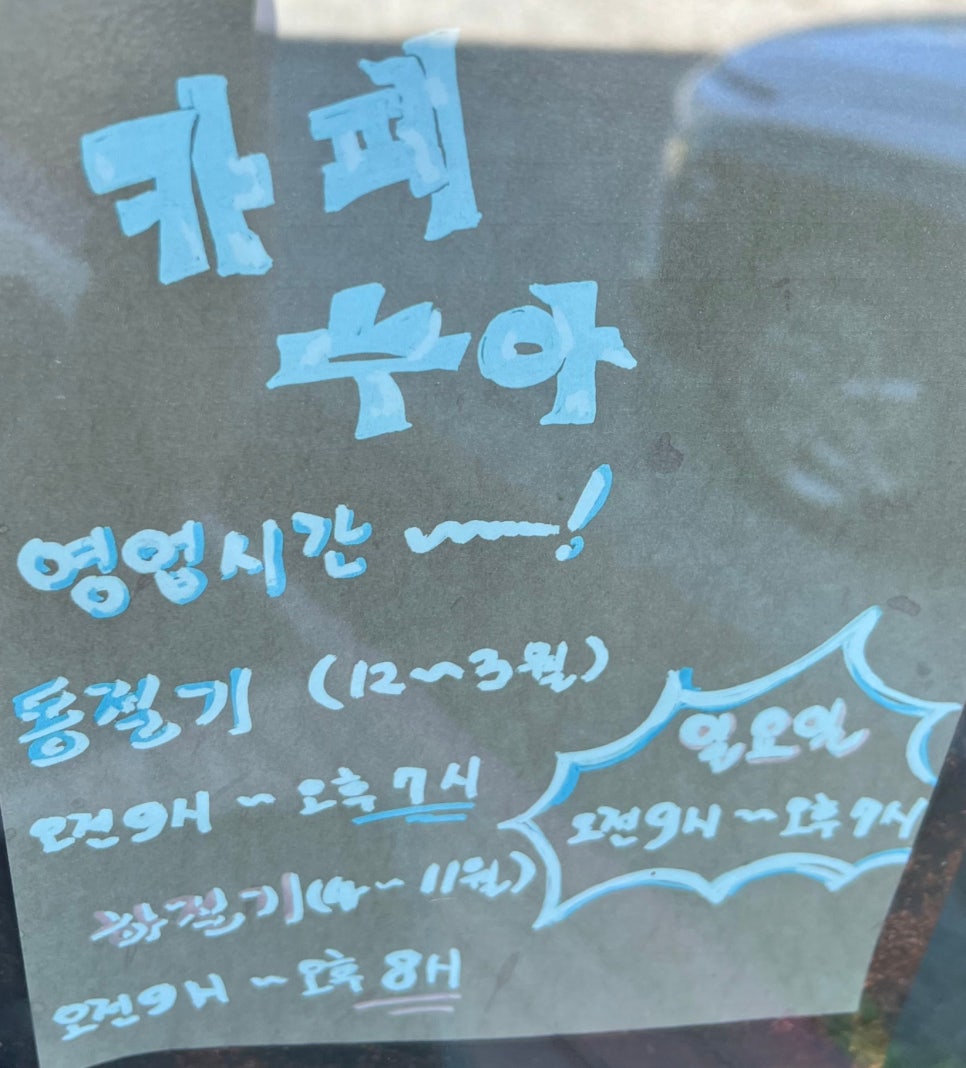 카페
수아
영업시간 ~!
동절기 (12~3월)
오전9시 ~ 오후 7시
하절기(4~11월)
오전9시 ~ 오후 8시
일요일
오전9시~오후7시